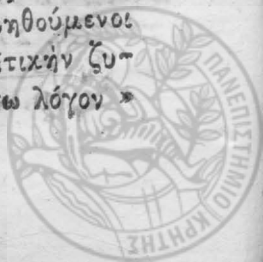 νηθούμενοι
τικήν ζυ-
ω λόγον »
ΠΑΝΕΠΙΣΤΗΜΙΟ ΚΡΗΤΗΣ